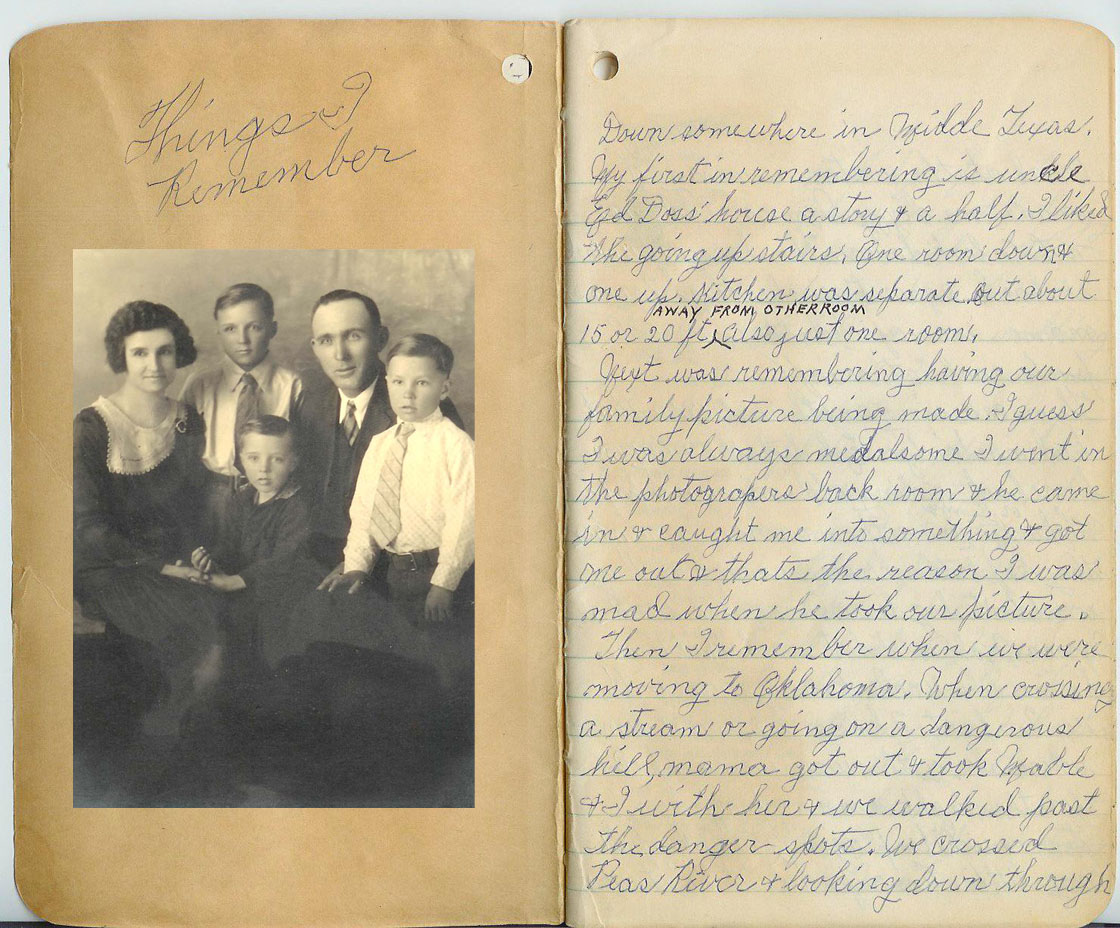 Things I
Remember
Down somewhere in Midde Texas.
My first in remembering is unkle
Ed Doss' house a story & a half. I liked
the going up stairs. One room down &
one up. Kitchen was separate out about
AWAY FROM OTHER ROOM
15 or 20 ft, also just one room.
Next was remembering having our
family picture being made. I guess
I was always medalsome I went in
the photograpers back room & he came
in & caught me into something & got
me out & thats the reason I was
mad when he took our picture.
Then I remember when we were
moving to Oklahoma. When crossing
a stream or going on a dangerous
hill, mama got out & took Mable
& I with her & we walked past
the danger spots. We crossed
Peas River & looking down through